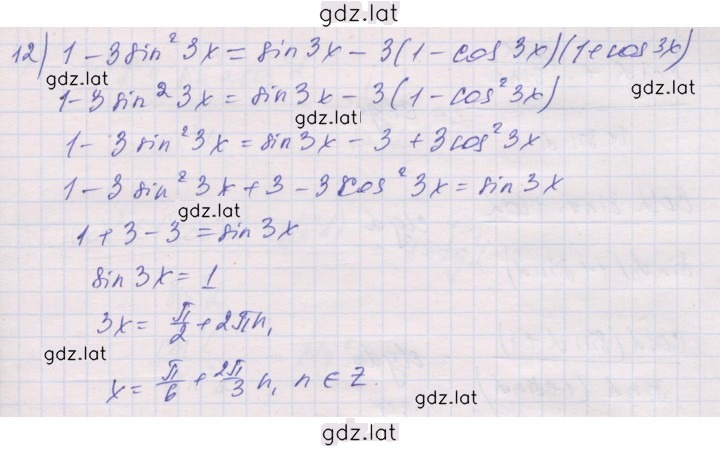 gdz.lat
12) 1 - 3 sin² 3x = sin 3x - 3(1 - cos 3x)(1 + cos 3x)
gdz.lat
gdz.lat
1 - 3 sin² 3x = sin 3x - 3(1 - cos² 3x)
gdz.lat
1 - 3 sin² 3x = sin 3x - 3 + 3 cos² 3x
1 - 3 sin² 3x + 3 - 3 cos² 3x = sin 3x
gdz.lat
1 + 3 - 3 = sin 3x
sin 3x = 1
3x = π/2 + 2πn,
gdz.lat
x = π/6 + 2π/3 n, n ∈ Z.
gdz.lat
gdz.lat